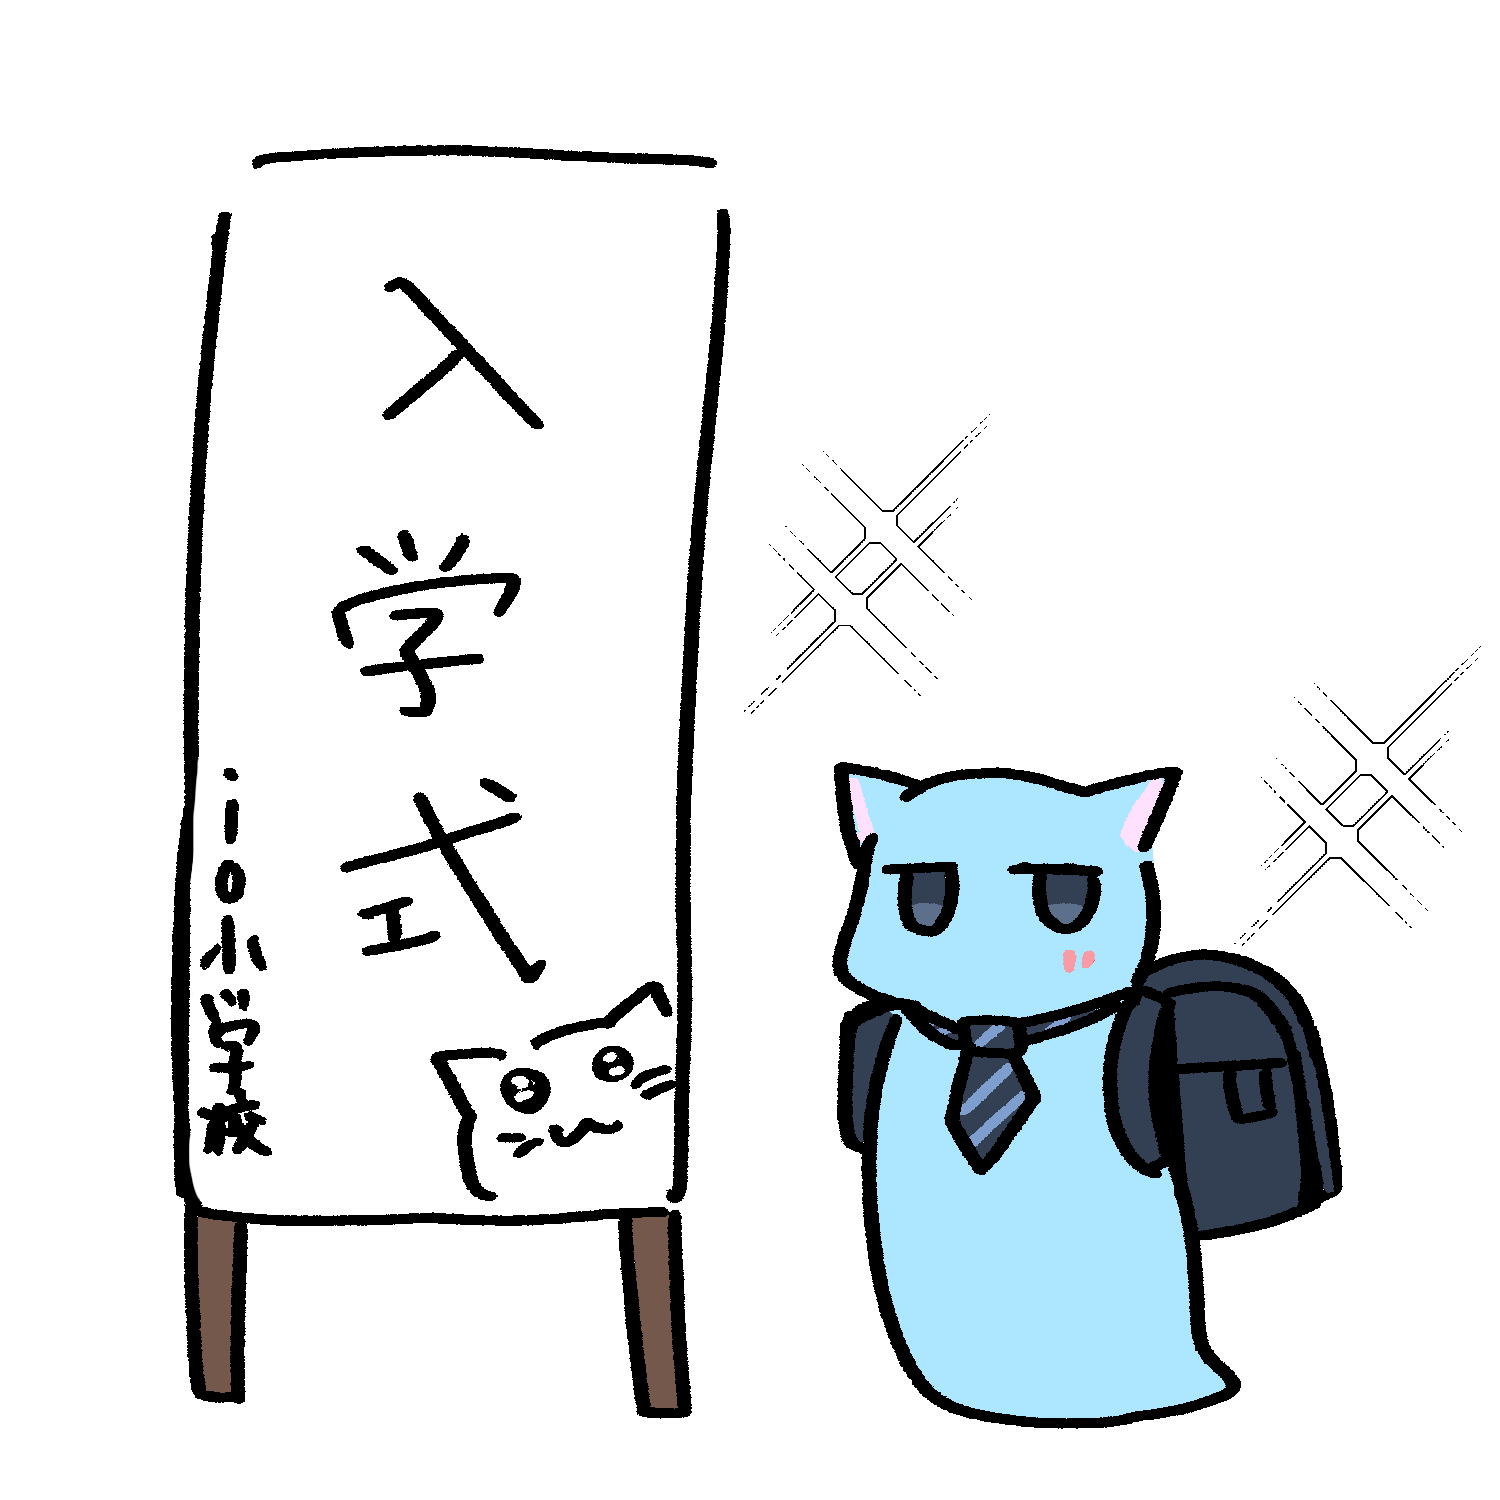 入学式
io小学校